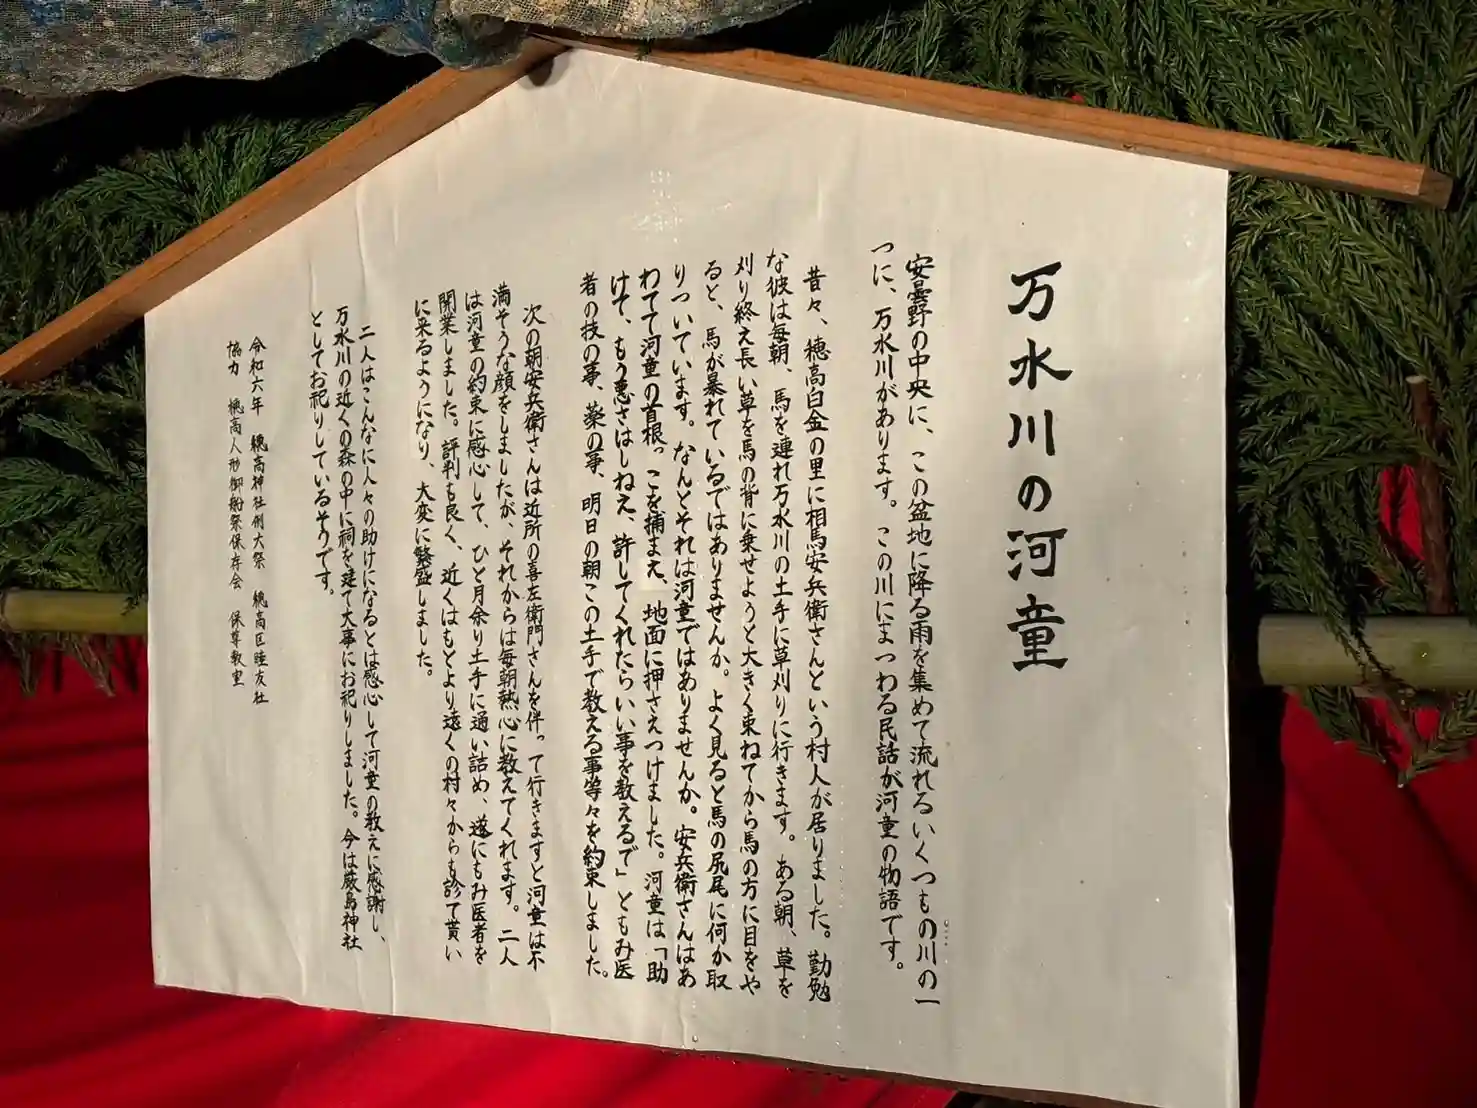 万水川の河童
安曇野の中央に、この盆地に降る雨を集めて流れるいくつもの川の一
つに、万水川があります。この川にまつわる民話が河童の物語です。
昔々、穂高白金の里に相馬安兵衛さんという村人が居りました。勤勉
な彼は毎朝、馬を連れ万水川の土手に草刈りに行きます。ある朝、草を
刈り終え長い草を馬の背に乗せようと大きく束ねてから馬の方に目をや
ると、馬が暴れているではありませんか。よく見ると馬の尻尾に何か取
りついています。なんとそれは河童ではありませんか。安兵衛さんはあ
わてて河童の首根っこを捕まえ、地面に押さえつけました。河童は「助
けて、もう悪さはしねえ、許してくれたらいい事を教えるで」ともみ医
者の技の事、薬の事、明日の朝この土手で教える事等々を約束しました。
次の朝安兵衛さんは近所の喜左衛門さんを伴って行きますと河童は不
満そうな顔をしましたが、それからは毎朝熱心に教えてくれます。二人
は河童の約束に感心して、ひと月余り土手に通い詰め、遂にもみ医者を
開業しました。評判も良く、近くはもとより遠くの村々からも診て貰い
に来るようになり、大変に繁盛しました。
二人はこんなに人々の助けになるとは感心して河童の教えに感謝し、
万水川の近くの森の中に祠を建て大事にお祀りしました。今は厳島神社
としてお祀りしているそうです。
令和六年 穂高神社例大祭 穂高区睦友社
協力 穂高人形御船祭保存会 保尊敦里